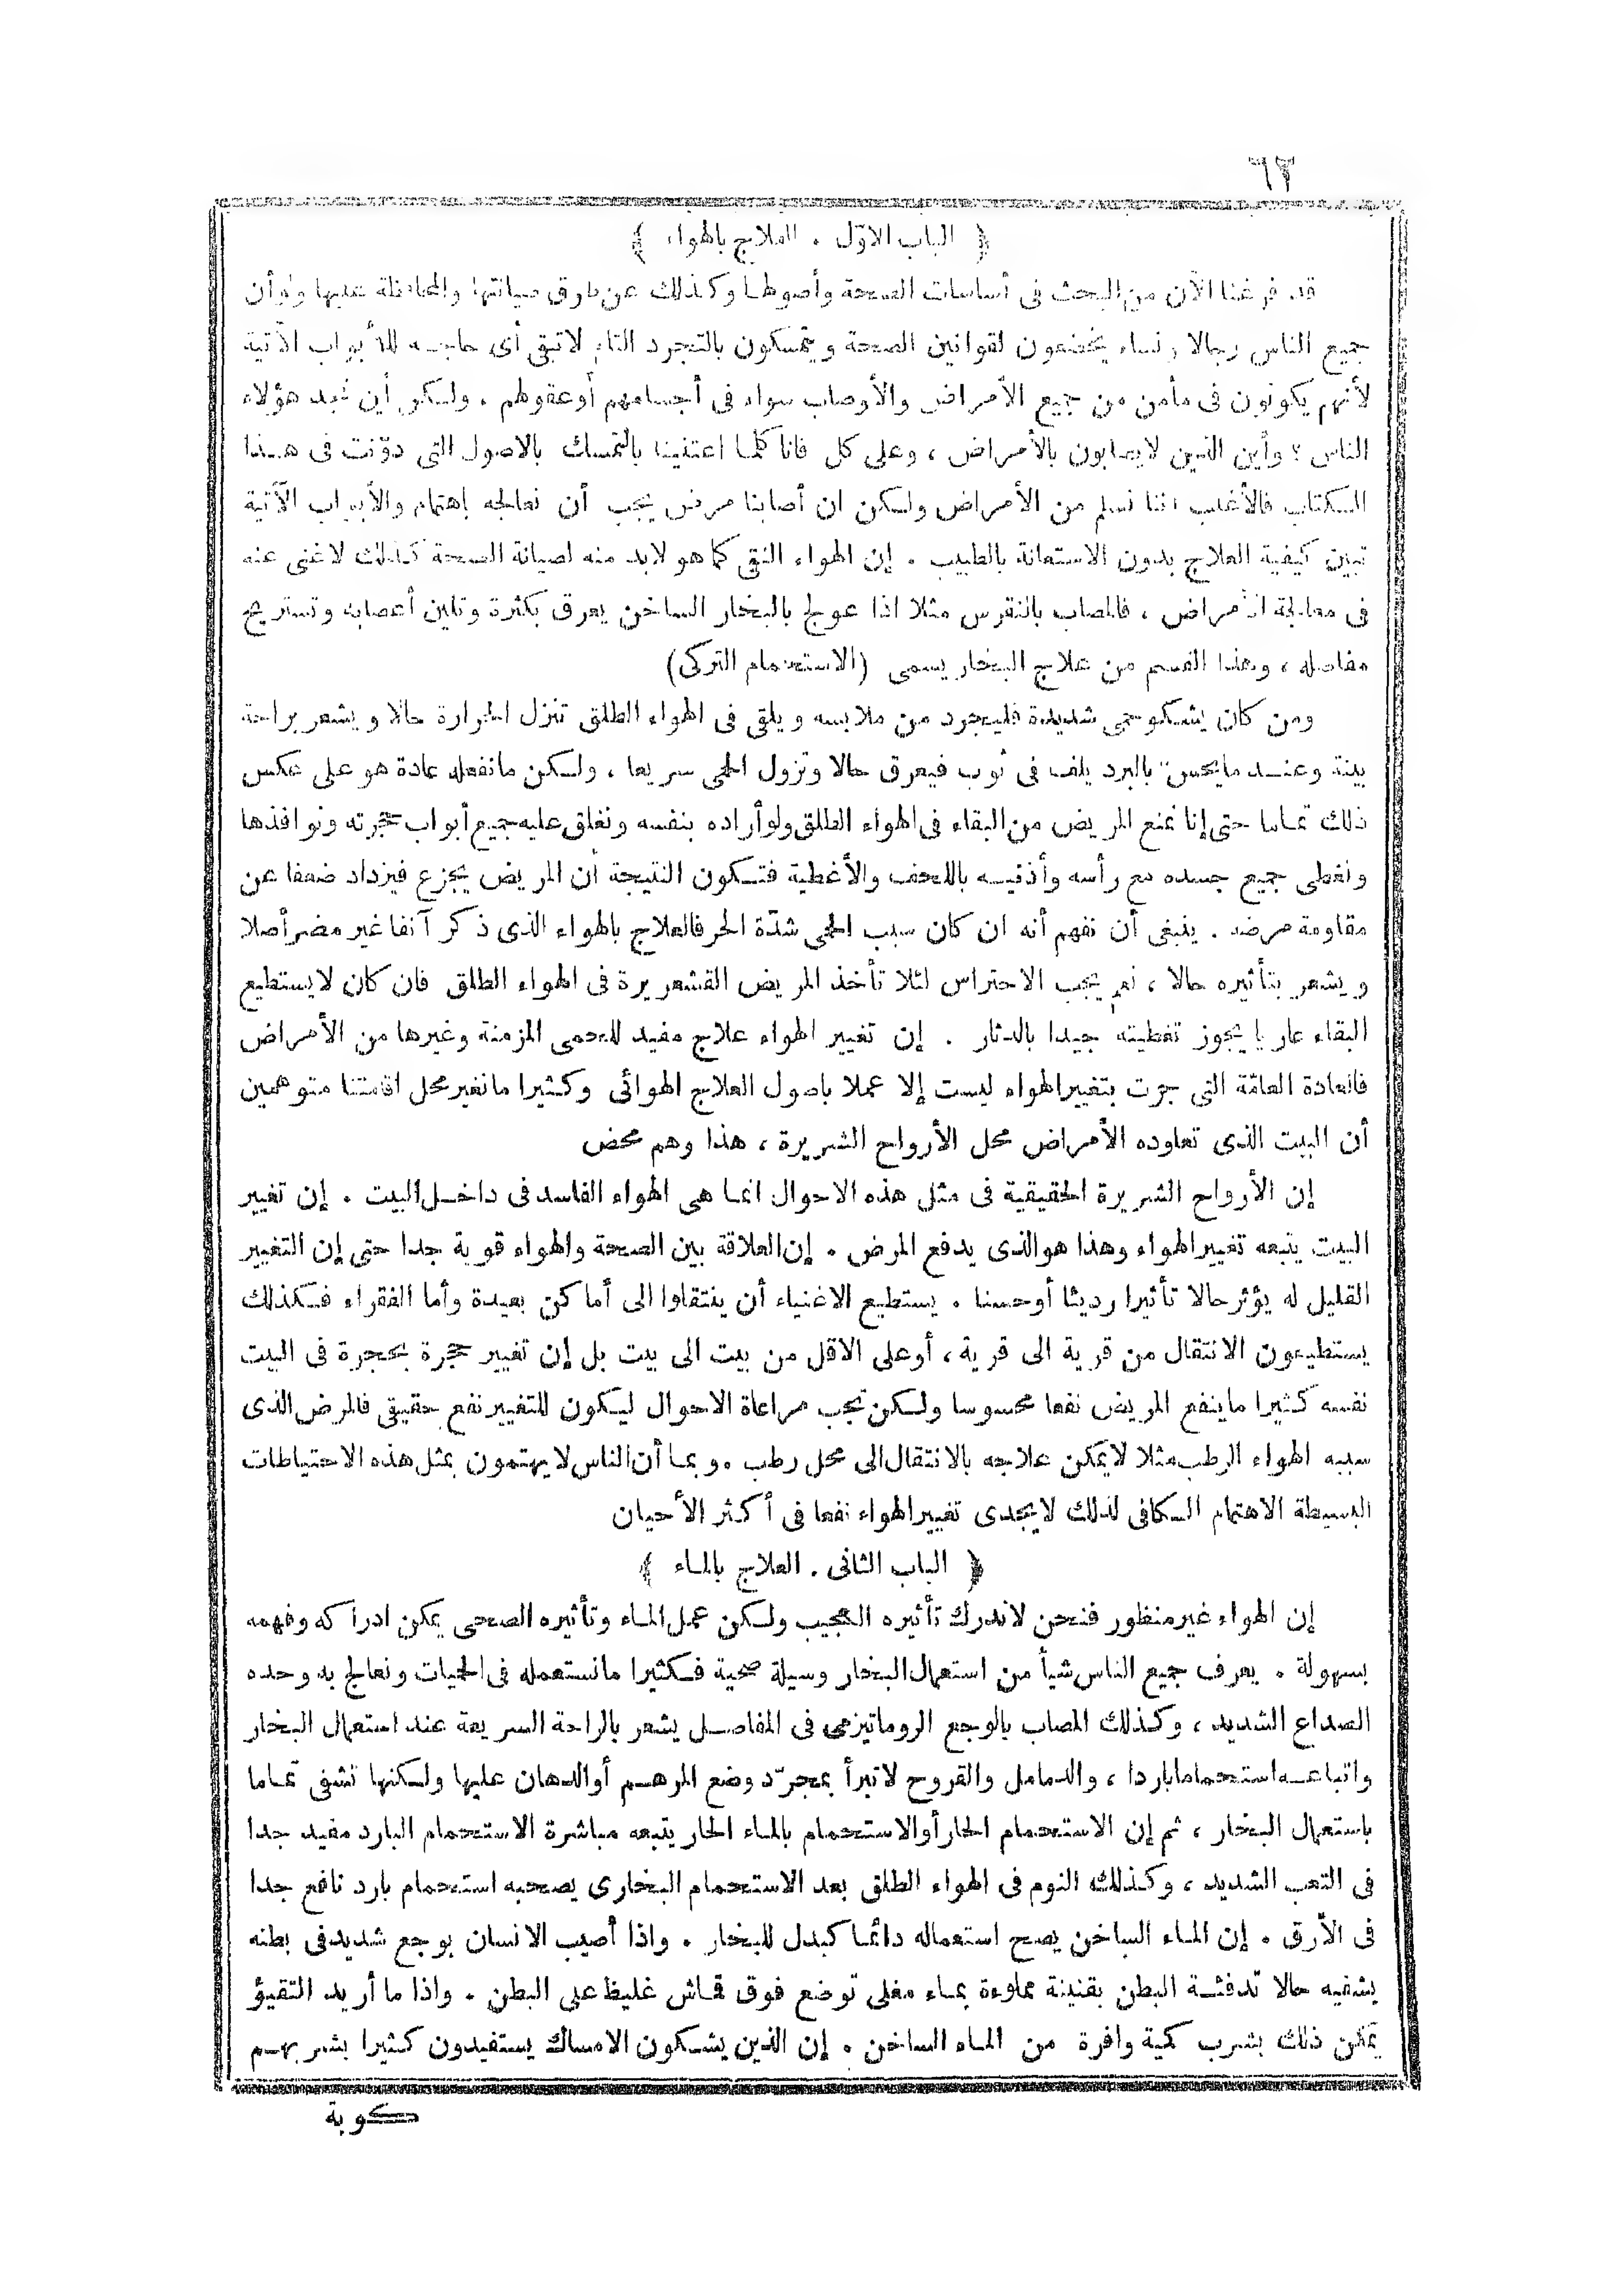 ٦٢
﴿ الباب الاوّل . العلاج بالهواء ﴾
قد فرغنا الآن من البحث فى أساسات الصحة وأصولها وكذلك عن طرق صيانتها والمحافظة عليها ولوأن
جميع الناس رجالا ونساء يخضعون لقوانين الصحة ويتمسكون بالتجرد التام لاتبقى أى حاجــة للأبواب الآتية
لأنهم يكونون فى مأمن من جميع الأمراض والأوصاب سواء فى أجسامهم أوعقولهم . ولكن أين نجد هؤلاء
الناس ؟ وأين الذين لايصابون بالأمراض ، وعلى كل فانا كلما اعتنينا بالتمسك بالاصول التى دوّنت فى هــذا
الكتاب فالأغلب اننا نسلم من الأمراض ولكن ان أصابنا مرض يجب أن نعالجه باهتمام والأبواب الآتية
تبين كيفية العلاج بدون الاستعانة بالطبيب . إن الهواء النقى كماهو لابد منه لصيانة الصحة كذلك لاغنى عنه
فى معالجة الأمراض ، فالمصاب بالنقرس مثلا اذا عولج بالبخار الساخن يعرق بكثرة وتلين أعصابه وتستريح
مفاصله ، وهذا القسم من علاج البخار يسمى (الاستحمام التركى)
ومن كان يشكوحمى شديدة فليجرد من ملابسه ويلقى فى الهواء الطلق تنزل الحرارة حالا ويشعر براحة
بينة وعنــد مايحسّ بالبرد يلف فى ثوب فيعرق حالا وتزول الحمى سريعا ، ولكن مانفعله عادة هو على عكس
ذلك تماما حتى إنا نمنع المريض من البقاء فى الهواء الطلق ولوأراده بنفسه ونغلق عليه جميع أبواب حجرته ونوافذها
ونغطى جميع جسده مع رأسه وأذنيــه باللحف والأغطية فتكون النتيجة أن المريض يجزع فيزداد ضعفا عن
مقاومة مرضه . ينبغى أن نفهم أنه ان كان سبب الحمى شدّة الحر فالعلاج بالهواء الذى ذكر آنفا غير مضر أصلا
ويشعر بتأثيره حالا ، نعم يجب الاحتراس لئلا تأخذ المريض القشعريرة فى الهواء الطلق فان كان لايستطيع
البقاء عاريا يجوز تغطيته جيدا بالدثار . إن تغيير الهواء علاج مفيد للحمى المزمنة وغيرها من الأمراض
فالعادة العامّة التى جرت بتغيير الهواء ليست إلا عملا باصول العلاج الهوائى وكثيرا مانغير محل اقامتنا متوهمين
أن البيت الذى تعاوده الأمراض محل الأرواح الشريرة ، هذا وهم محض
إن الأرواح الشريرة الحقيقية فى مثل هذه الاحوال انما هى الهواء الفاسد فى داخــل البيت . إن تغيير
البيت يتبعه تغيير الهواء وهذا هوالذى يدفع المرض . إن العلاقة بين الصحة والهواء قوية جدا حتى إن التغيير
القليل له يؤثر حالا تأثيرا رديئا أوحسنا . يستطيع الاغنياء أن ينتقلوا الى أماكن بعيدة وأما الفقراء فكذلك
يستطيعون الانتقال من قرية الى قرية ، أوعلى الاقل من بيت الى بيت بل إن تغيير حجرة بحجرة فى البيت
نفسه كثيرا ماينفع المريض نفعا محسوسا ولكن يجب مراعاة الاحوال ليكون للتغيير نفع حقيقى فالمرض الذى
سببه الهواء الرطب مثلا لايمكن علاجه بالانتقال الى محل رطب . وبما أن الناس لايهتمون بمثل هذه الاحتياطات
البسيطة الاهتمام الكافى لذلك لايجدى تغيير الهواء نفعا فى أكثر الأحيان
﴿ الباب الثانى . العلاج بالماء ﴾
إن الهواء غير منظور فنحن لاندرك تأثيره العجيب ولكن عمل الماء وتأثيره الصحى يمكن ادراكه وفهمه
بسهولة . يعرف جميع الناس شيأ من استعمال البخار وسيلة صحية فكثيرا مانستعمله فى الحميات ونعالج به وحده
الصداع الشديد ، وكذلك المصاب بالوجع الروماتيزمى فى المفاصــل يشعر بالراحة السريعة عند استعمال البخار
واتباعــه استحماما باردا ، والدمامل والقروح لاتبرأ بمجرّد وضع المرهــم أوالدهان عليها ولكنها تشفى تماما
باستعمال البخار ، ثم إن الاستحمام الحار أوالاستحمام بالماء الحار يتبعه مباشرة الاستحمام البارد مفيد جدا
فى التعب الشديد ، وكذلك النوم فى الهواء الطلق بعد الاستحمام البخارى يصحبه استحمام بارد نافع جدا
فى الأرق . إن الماء الساخن يصح استعماله دائما كبدل للبخار . واذا أصيب الانسان بوجع شديد فى بطنه
يشفيه حالا تدفئــة البطن بقنينة مملوءة بماء مغلى توضع فوق قماش غليظ على البطن . واذا ما أريد التقيؤ
يمكن ذلك بشرب كمية وافرة من الماء الساخن . إن الذين يشكون الامساك يستفيدون كثيرا بشربهــم
كوبة